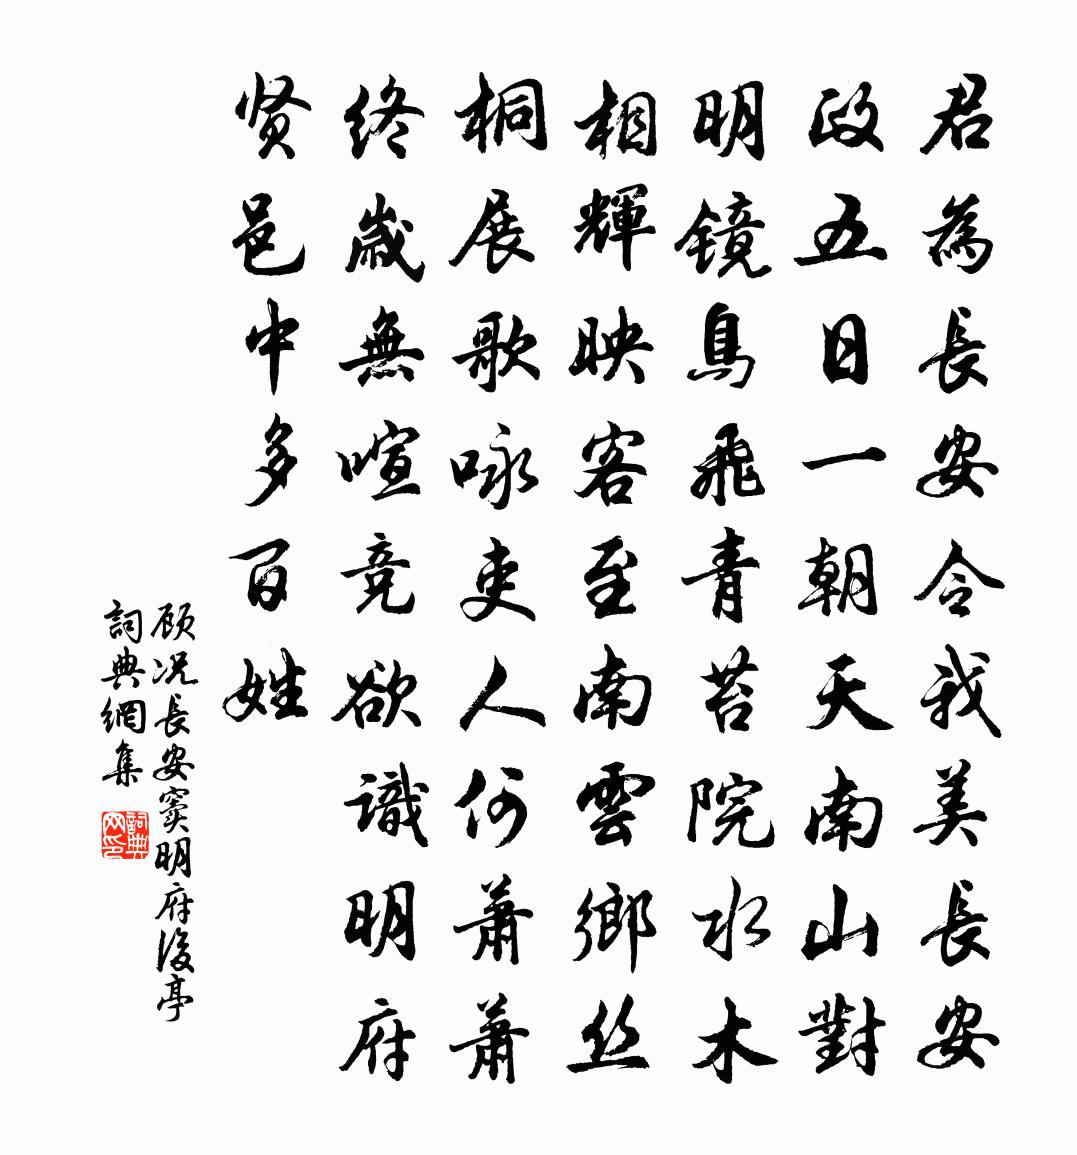 君為長安令我美長安
政五日一朝天南山對
明鏡鳥飛青苔院水木
相輝映客至南雲鄉丝
桐展歌咏吏人何蕭蕭
终歲無喧竞欲識明府
贤邑中多百姓
顾况長安竇明府後亭
詞典網集
詞典网印